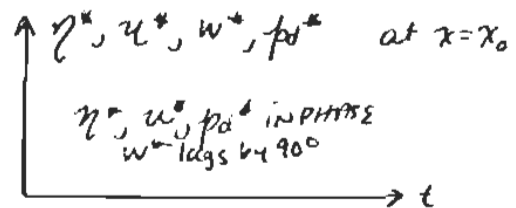 η*, u*, w*, pd* at x=x₀
η*, u*, pd* IN PHASE
w* lags by 90°
t